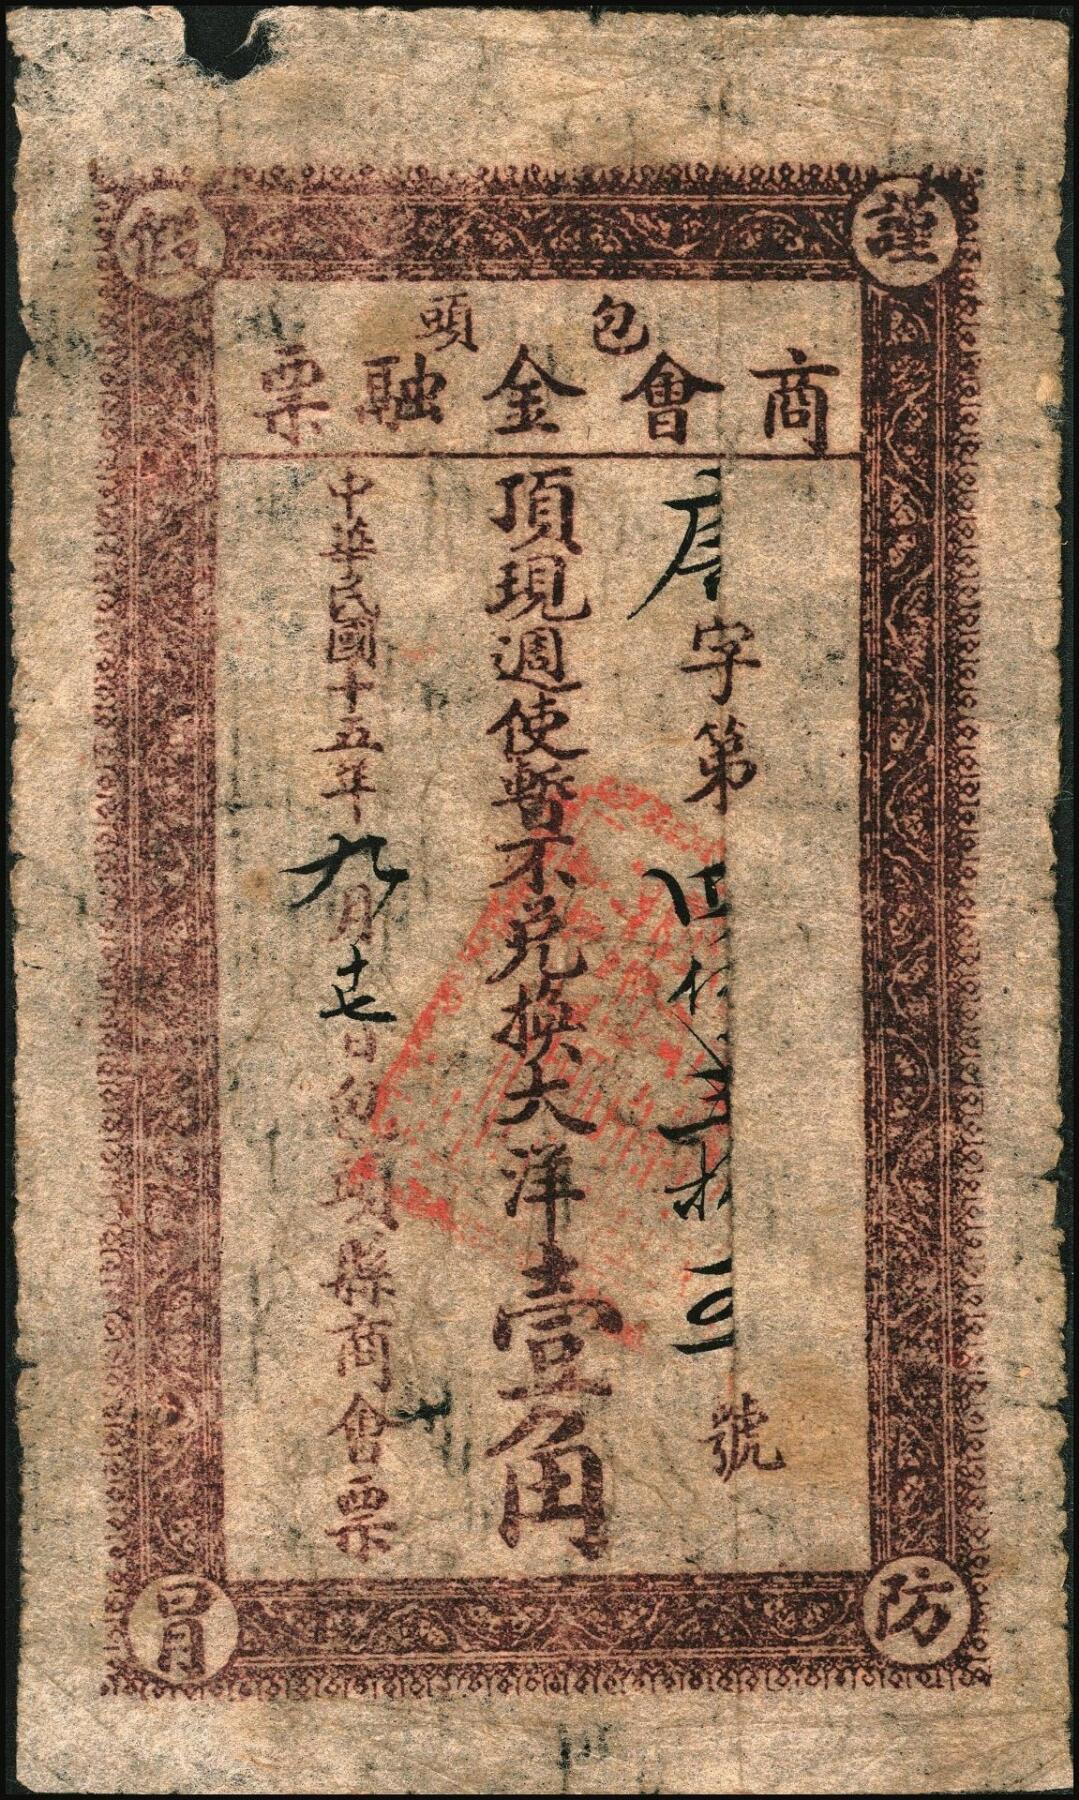 包頭
商會金融票
字第
號
頂現週使暫不兌換大洋壹角
中華民國十五年九月十七日包頭縣商會票
謹防假冒